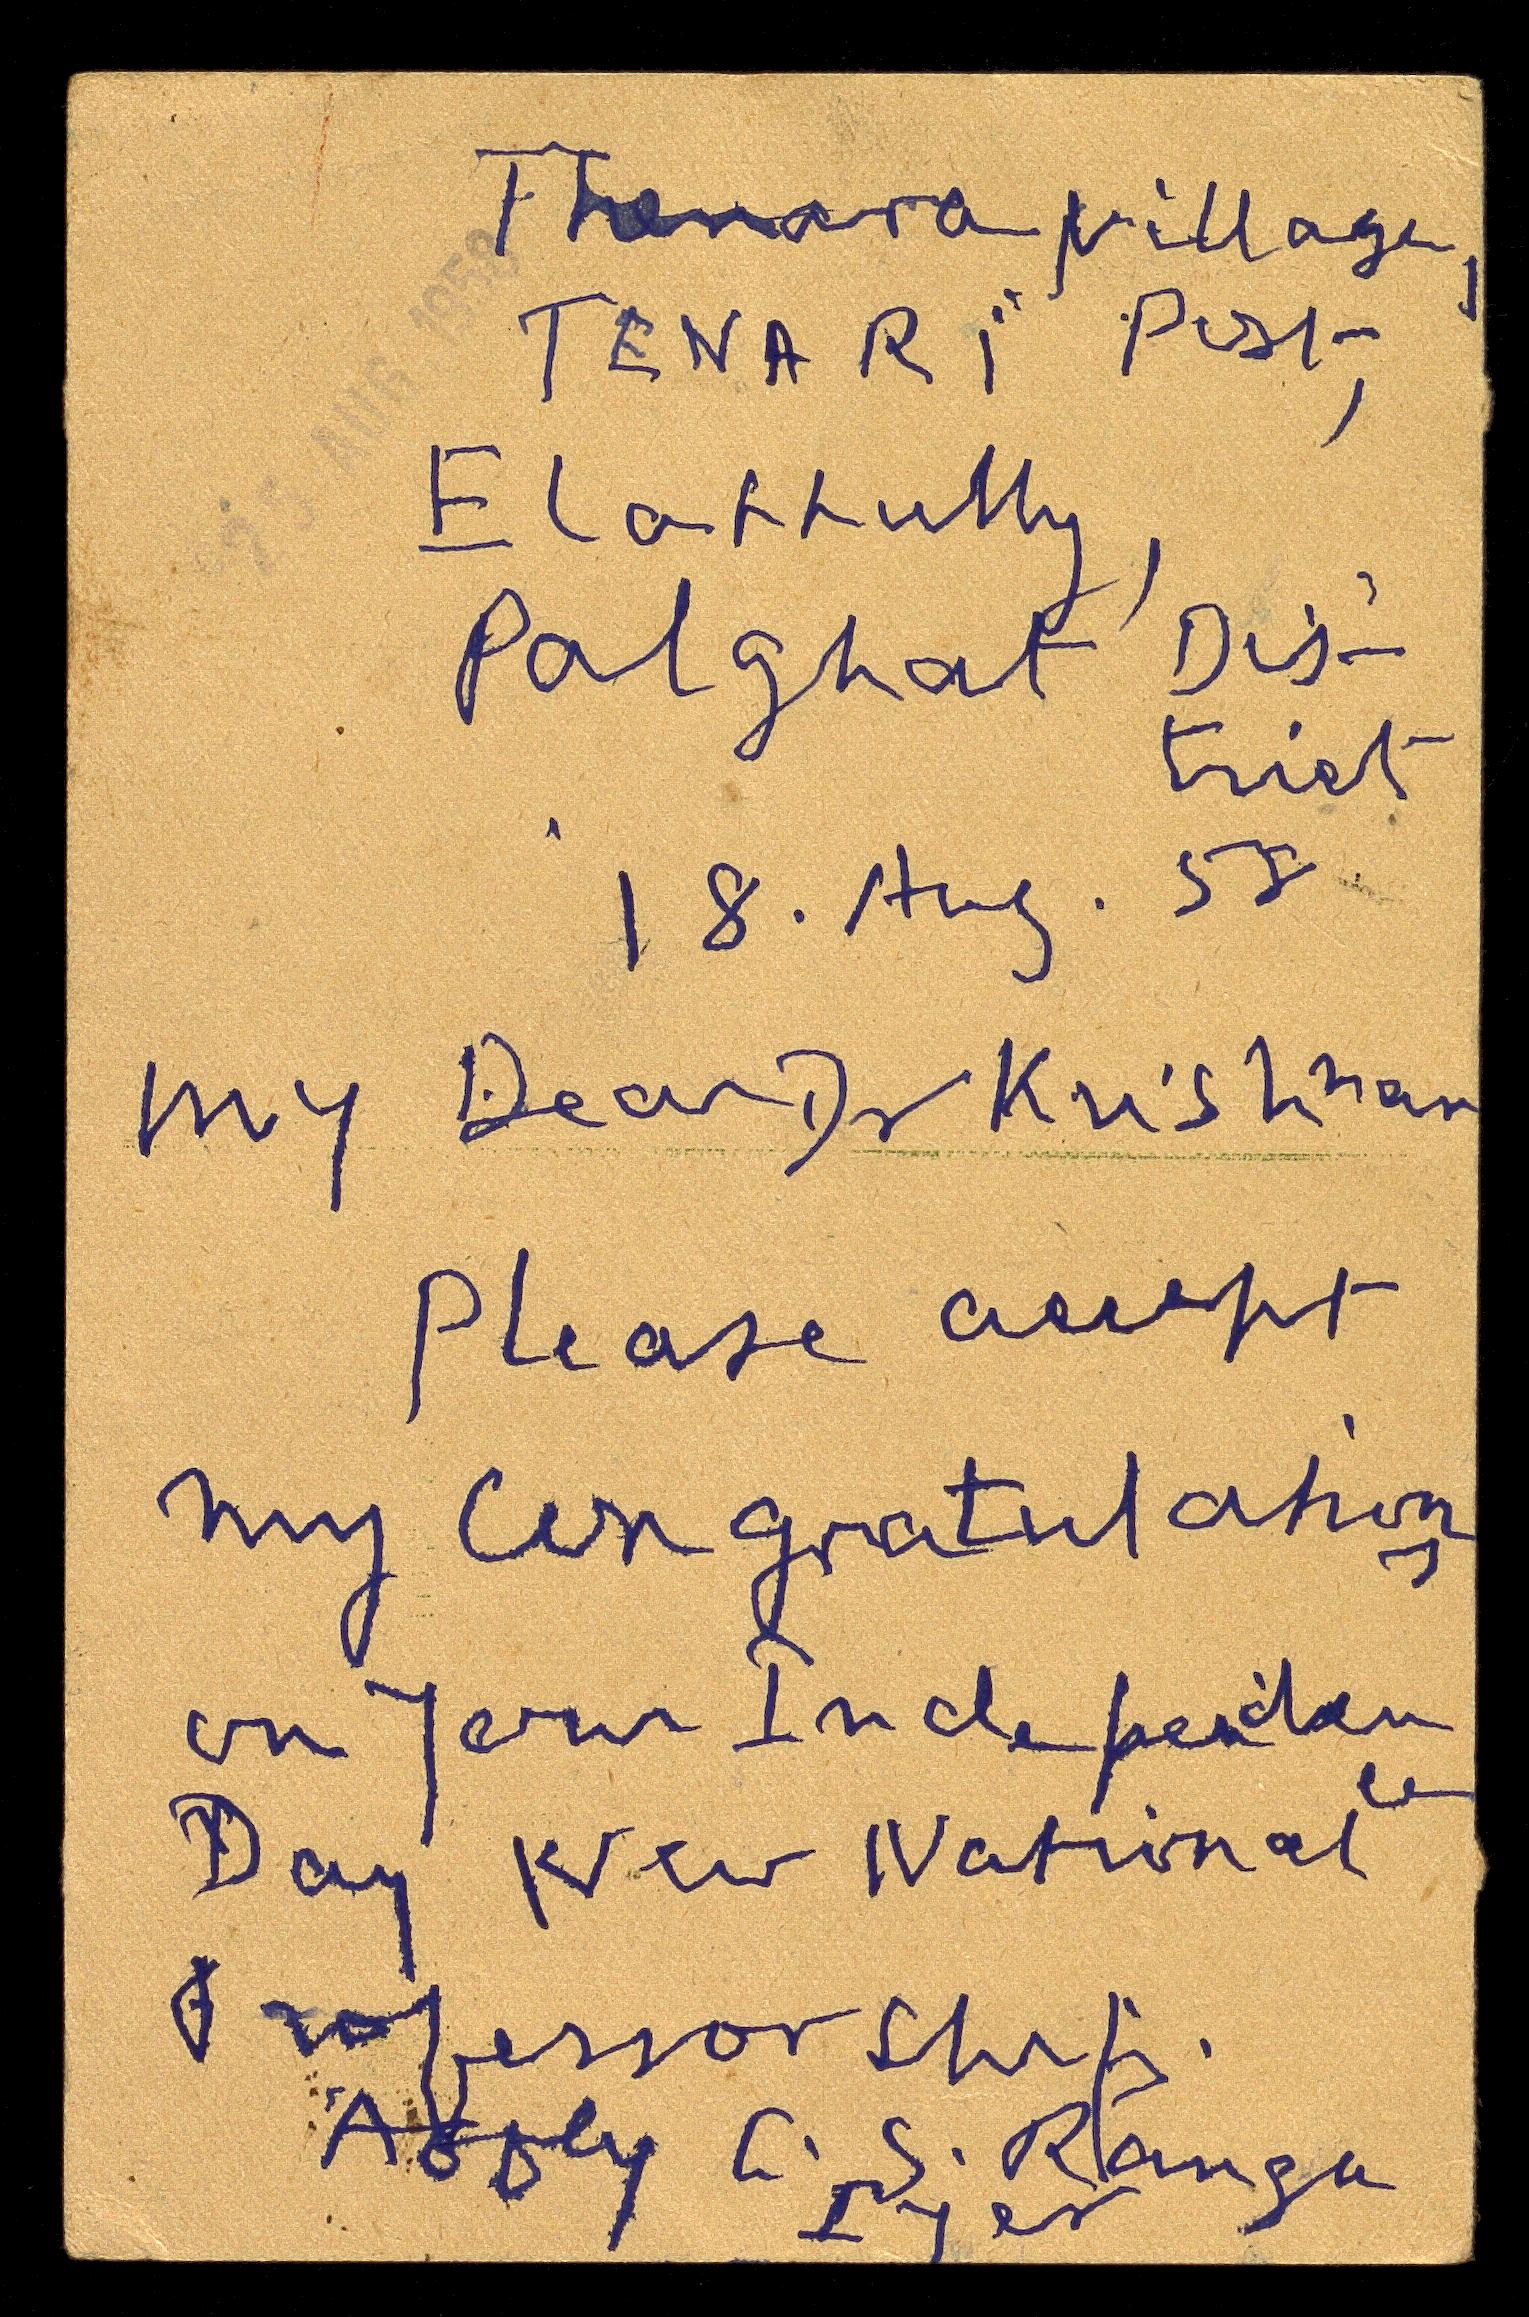 Thenara village,
TENARI Post,
Elappully,
Palghat Dis-
trict
18. Aug. 58
25 AUG 1958
My Dear Dr Krishnan
Please accept
my Congratulations
on your Independence
Day New National
Professorship.
C. S. Ranga
Iyer